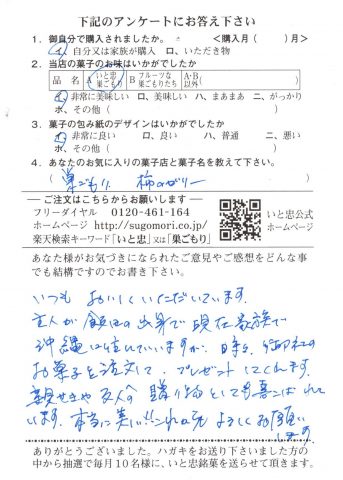 下記のアンケートにお答え下さい
1．御自分で購入されましたか。　＜購入月（　　）月＞
イ．自分又は家族が購入　ロ、いただき物
2．当店の菓子のお味はいかがでしたか
品名　A いと忠巣ごもり　B フルーツな巣ごもりたち　A・B以外（　　）
イ．非常に美味しい　ロ、美味しい　ハ、まあまあ　ニ、がっかり
ホ、その他（　　）
3．菓子の包み紙のデザインはいかがでしたか
イ．非常に良い　ロ、良い　ハ、普通　ニ、悪い
ホ、その他（　　）
4．あなたのお気に入りの菓子店と菓子名を教えて下さい。
（巣ごもり　柿のゼリー）
―ご注文はこちらからお願いします―
フリーダイヤル　0120-461-164
ホームページ http://sugomori.co.jp/
楽天検索キーワード「いと忠」又は「巣ごもり」
いと忠公式
ホームページ
あなた様がお気づきになられたご意見やご感想をどんな事
でも結構ですのでお書き下さい。
いつも おいしくいただいています。
主人が飯田の出身で現在家族で
沖縄に住んでいいますが、時々、御社の
お菓子を注文して、プレゼントしてくれます。
親せきや友人への贈り物としても喜ばれて
います。本当に美しい!!これからも よろしくお願い
します
ありがとうございました。ハガキをお送り下さいました方の
中から抽選で毎月10名様に、いと忠銘菓を送らせて頂きます。